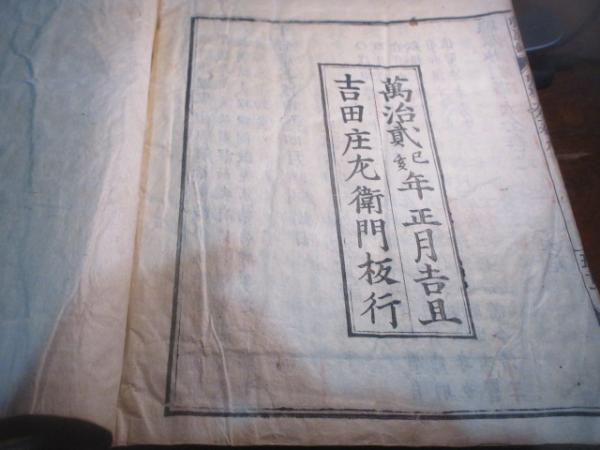 萬治貳己亥年正月吉旦
吉田庄左衛門板行